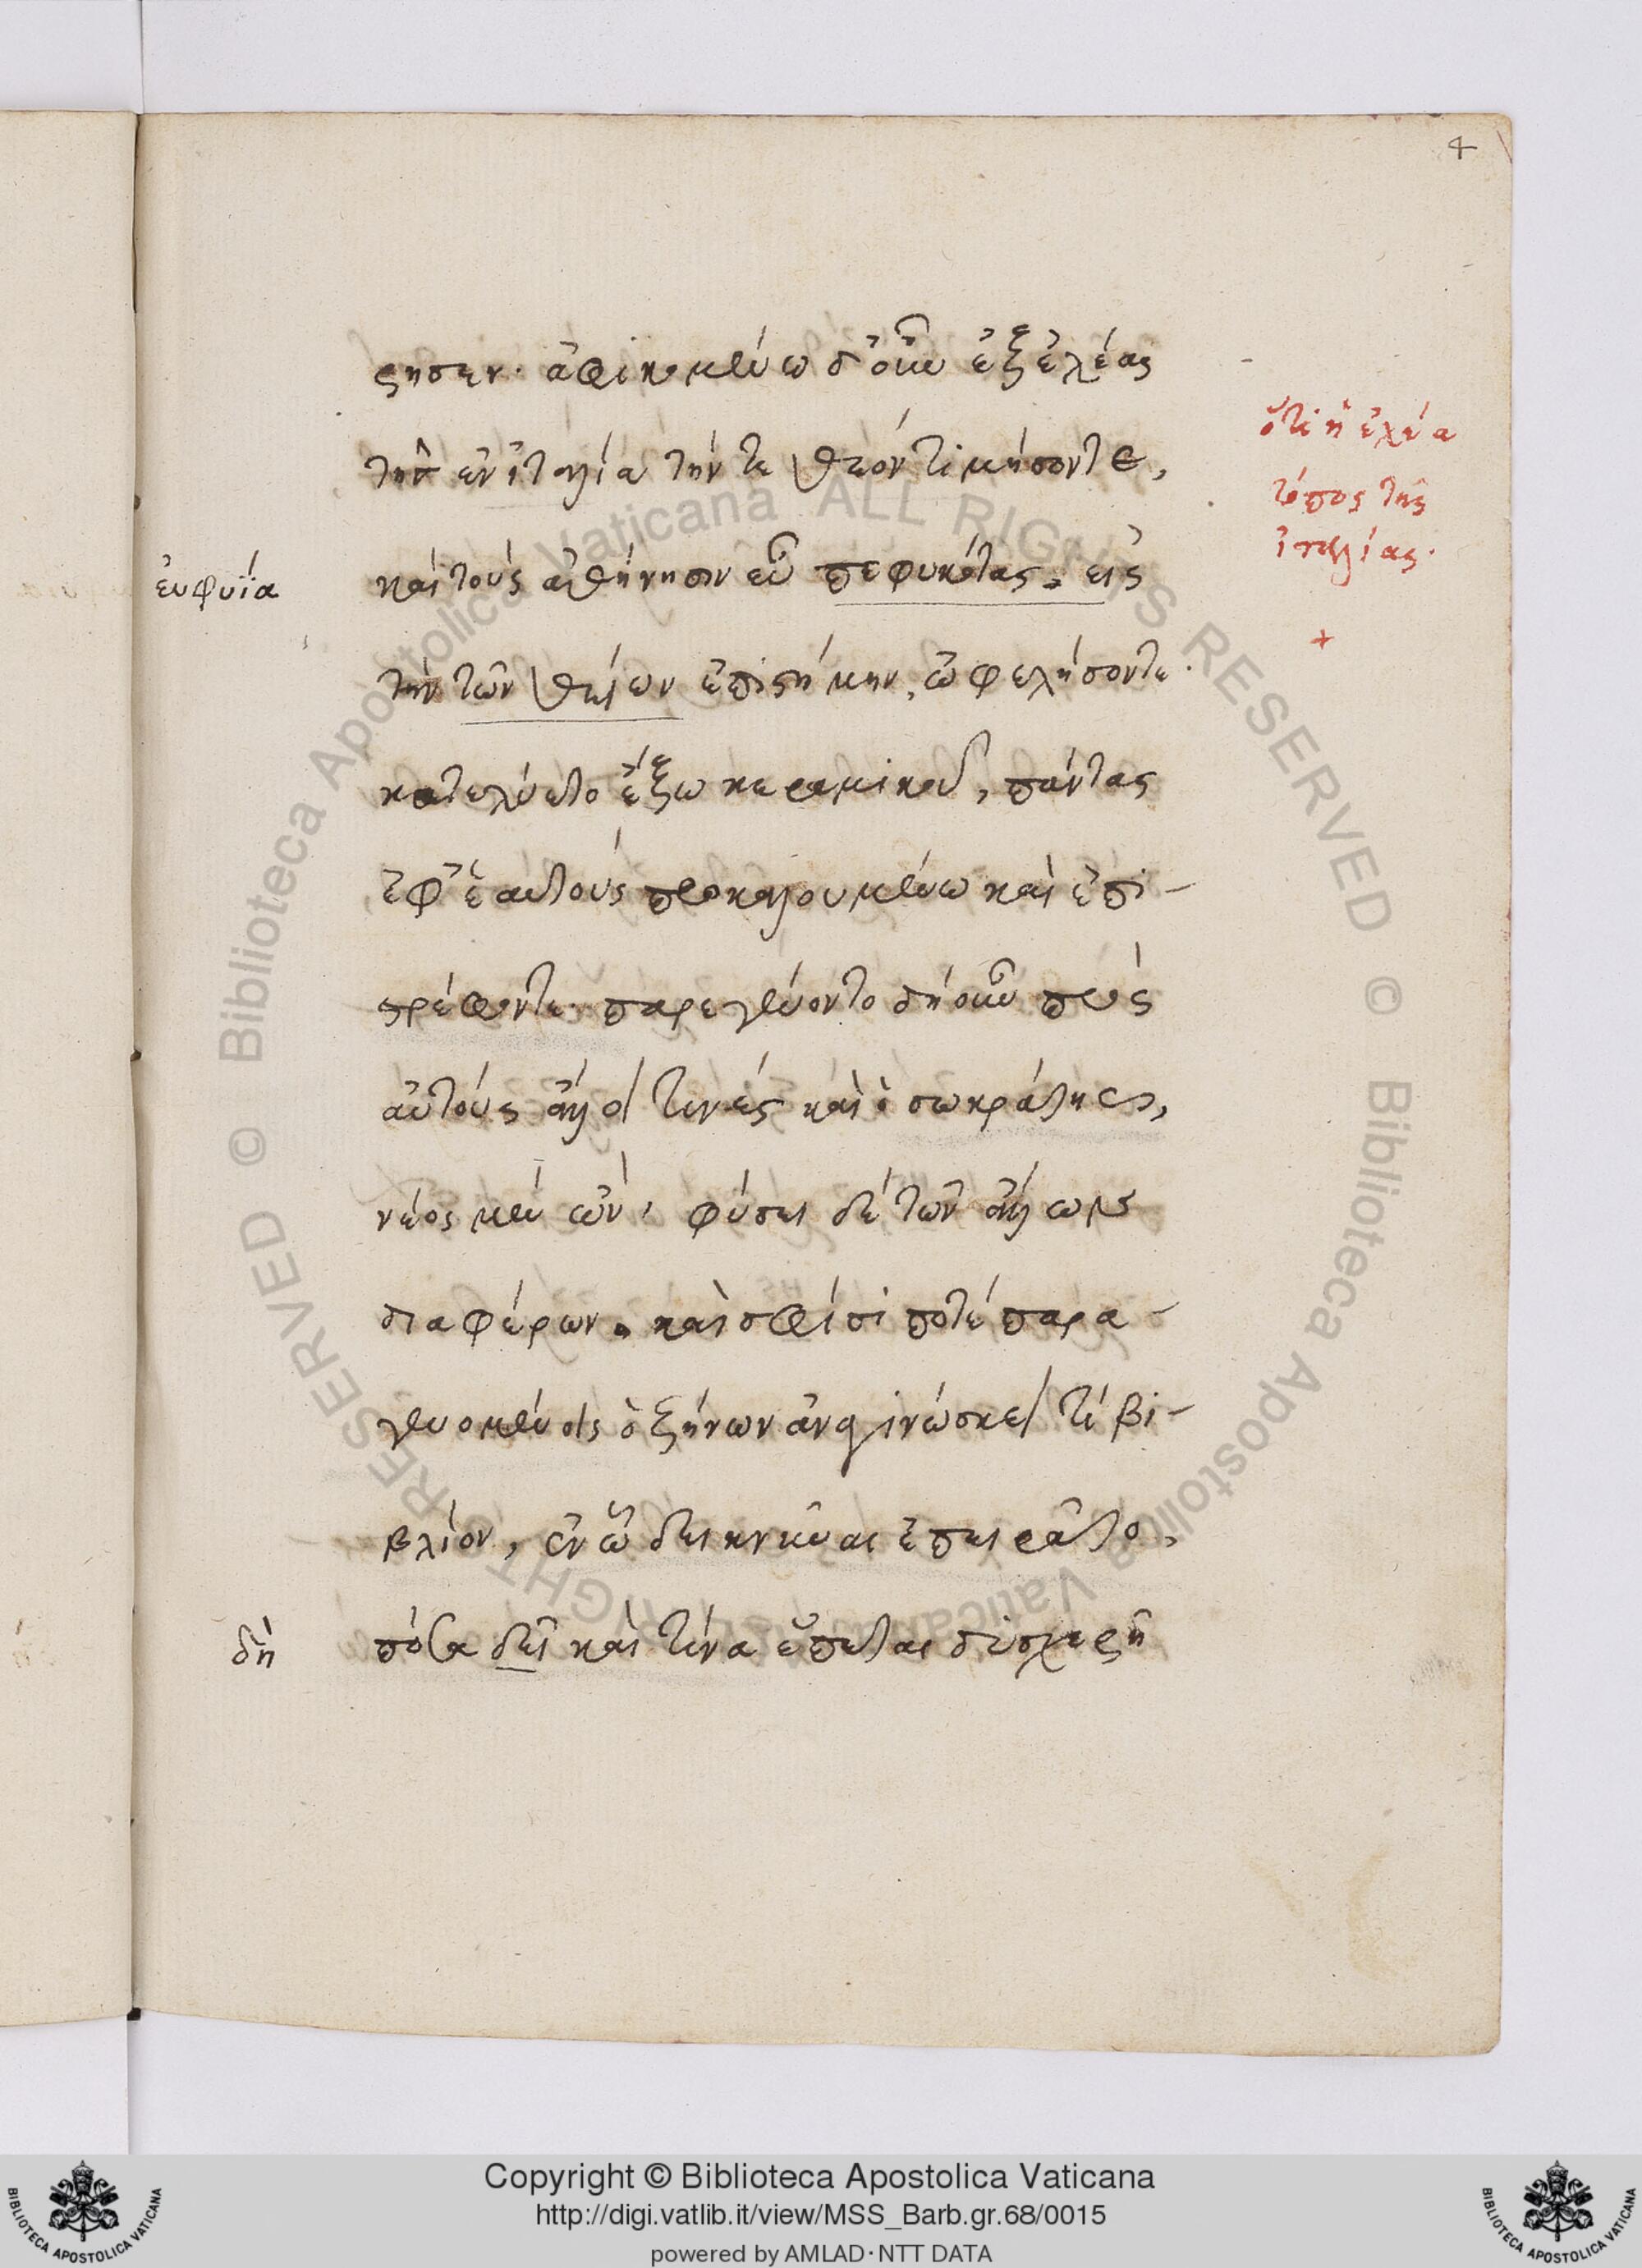 4
στησεν. ἀφικομένω δ' οὖν ἐξ ἐλέας
τῆς ἐν ἰταλία τήν τε θεὸν τιμήσοντε,
καὶ τοὺς ἀθήνησιν εὖ πεφυκότας, εἰς
τὴν τῶν θείων ἐπιστήμην, ὠφελήσοντε.
κατελύετο ἔξω κεραμικοῦ, πάντας
ἐφ' ἑαυτοὺς προκαλουμένω καὶ ἐπι-
στρέφοντε. παρεγένοντο δὴ οὖν πρὸς
αὐτοὺς ἄλλοι τινὲς καὶ ὁ σωκράτης,
νέος μὲν ὢν, φύσει δὲ τῶν ἄλλων
διαφέρων. καὶ σφίσι ποτὲ παρα-
γενομένοις ὁ ζήνων ἀνεγίνωσκε τι βι-
βλίον, ἐν ᾧ δεικνύναι ἐπειρᾶτο,
πόσα δεῖ καὶ τίνα ἕπεται δυσχερῆ
εὐφυΐα
δὴ
ὅτι ἡ ἐλέα
τόπος τῆς
ἰταλίας.
+
Copyright © Biblioteca Apostolica Vaticana
http://digi.vatlib.it/view/MSS_Barb.gr.68/0015
powered by AMLAD·NTT DATA
BIBLIOTECA APOSTOLICA VATICANA
BIBLIOTECA APOSTOLICA VATICANA
© Biblioteca Apostolica Vaticana ALL RIGHTS RESERVED
© Biblioteca Apostolica Vaticana ALL RIGHTS RESERVED